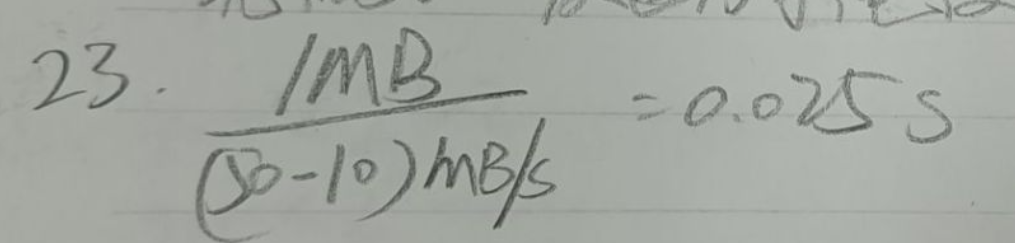 23. 1MB / (50-10)mB/s = 0.025 s